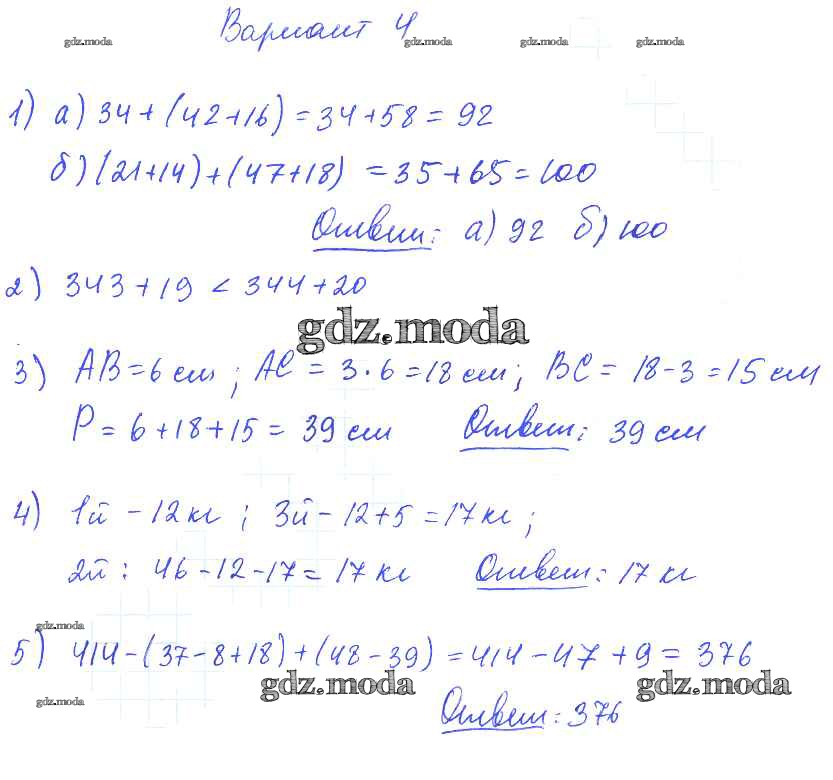 Вариант 4
gdz.moda gdz.moda gdz.moda gdz.moda
1) а) 34 + (42+16) = 34 + 58 = 92
б) (21+14) + (47+18) = 35 + 65 = 100
Ответ: а) 92 б) 100
2) 343 + 19 < 344 + 20
gdz.moda
3) AB = 6 см; AC = 3 · 6 = 18 см; BC = 18 - 3 = 15 см
P = 6 + 18 + 15 = 39 см Ответ: 39 см
4) 1й - 12 кг; 3й - 12 + 5 = 17 кг;
2й: 46 - 12 - 17 = 17 кг Ответ: 17 кг
gdz.moda
5) 414 - (37 - 8 + 18) + (48 - 39) = 414 - 47 + 9 = 376
gdz.moda gdz.moda
gdz.moda
Ответ: 376